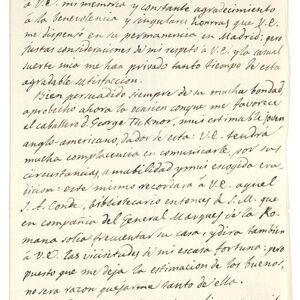 à V.E. mi memoria y constante agradecimiento
á la benevolencia y singulares honras que V.E.
me dispensó en su permanencia en Madrid; pero
justas consideraciones de mi respeto à V.E. y la usual
suerte mia me han privado tanto tiempo de esta
agradable satisfaccion.
Bien persuadido siempre de su mucha bondad,
aprobecho ahora la ocasion con que me favorece
el caballero D. George Ticknor, mui estimable joven
anglo-americano, dador de esta: V.E. tendrá
mucha complacencia en comunicarle, por sus
circunstancias, amabilidad y mui escogida eru-
dicion: este mismo recordará à V.E. aquel
J. A. Conde, Bibliotecario entonces de S.M. que
en compañia del General Marques de la Ro-
mana solia frecuentar su casa, y dira tambien
à V.E. las vicisitudes de mi escasa fortuna: pero
puesto que me deja la estimacion de los buenos,
no sera razon quejarme tanto de ella.